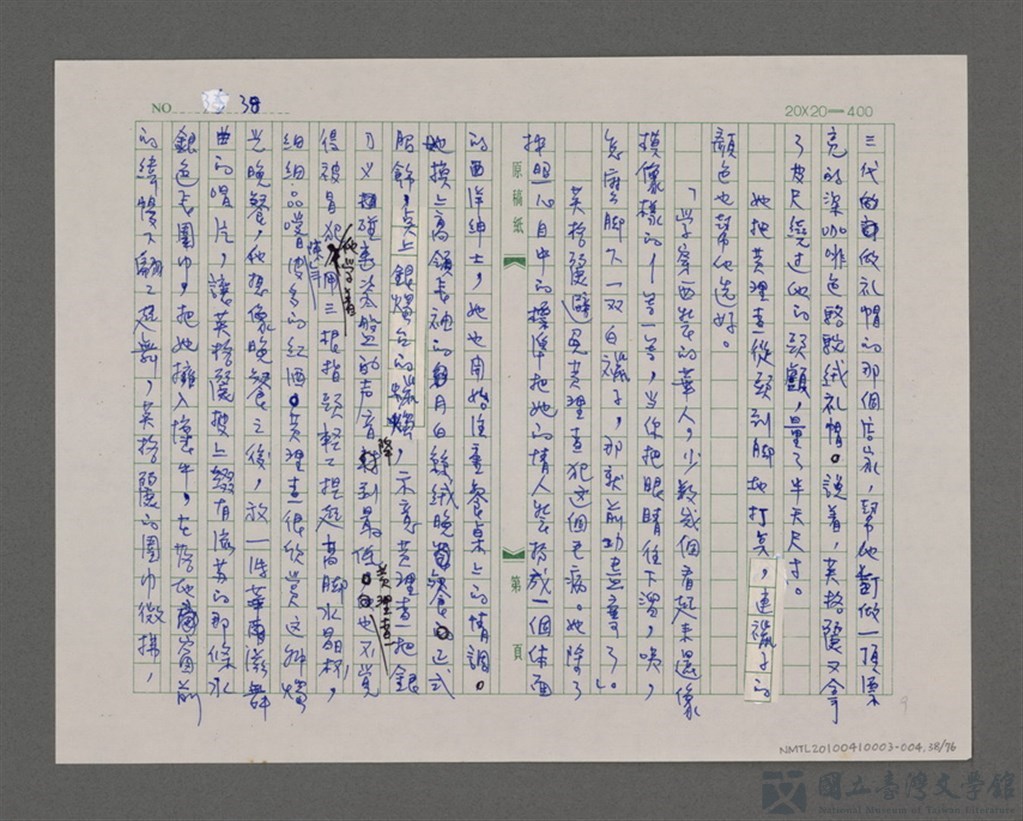 NO 38
20X20=400
三代的做礼帽的那個店家,幫他訂做一頂漂
亮的深咖啡色駱駝絨礼帽。說著,英格麗又拿
了皮尺繞過他的頭顱,量了半天尺寸。
她把黃理查從頭到腳地打點,連襪子的
顏色也幫他選好。
「學穿西裝的華人,少數幾個看起來還像
模像樣的──等一等,当你把眼睛往下溜,咦,
怎麼腳下一双白襪子,那就前功盡棄了。」
英格麗避免黃理查犯這個毛病。她除了
按照心目中的標準把她的情人裝扮成一個体面
原稿紙
第 頁
的西洋紳士,她也開始注重餐桌上的情調。
她換上高領長袖的月白絲絨晚餐正式
服飾,点上銀燭台的蠟燭,不意黃理查把銀
刀叉碰在瓷盤的声音降到最低。黃理查也不覺
得被冒犯,他學著用三根指頭輕輕提起高腳水晶杯,
細細品嚐波多的紅酒。黃理查很欣賞這种燭
光晚餐,他想像晚餐之後,放一張華爾滋舞
曲的唱片,讓英格麗披上綴有流苏的那條水
銀色長圍巾,把她擁入懷中,在落地窗前
的緯幔下翩翩起舞,英格麗的圍巾微拂,
NMTL20100410003-004.38/76
國立臺灣文學館
National Museum of Taiwan Literature